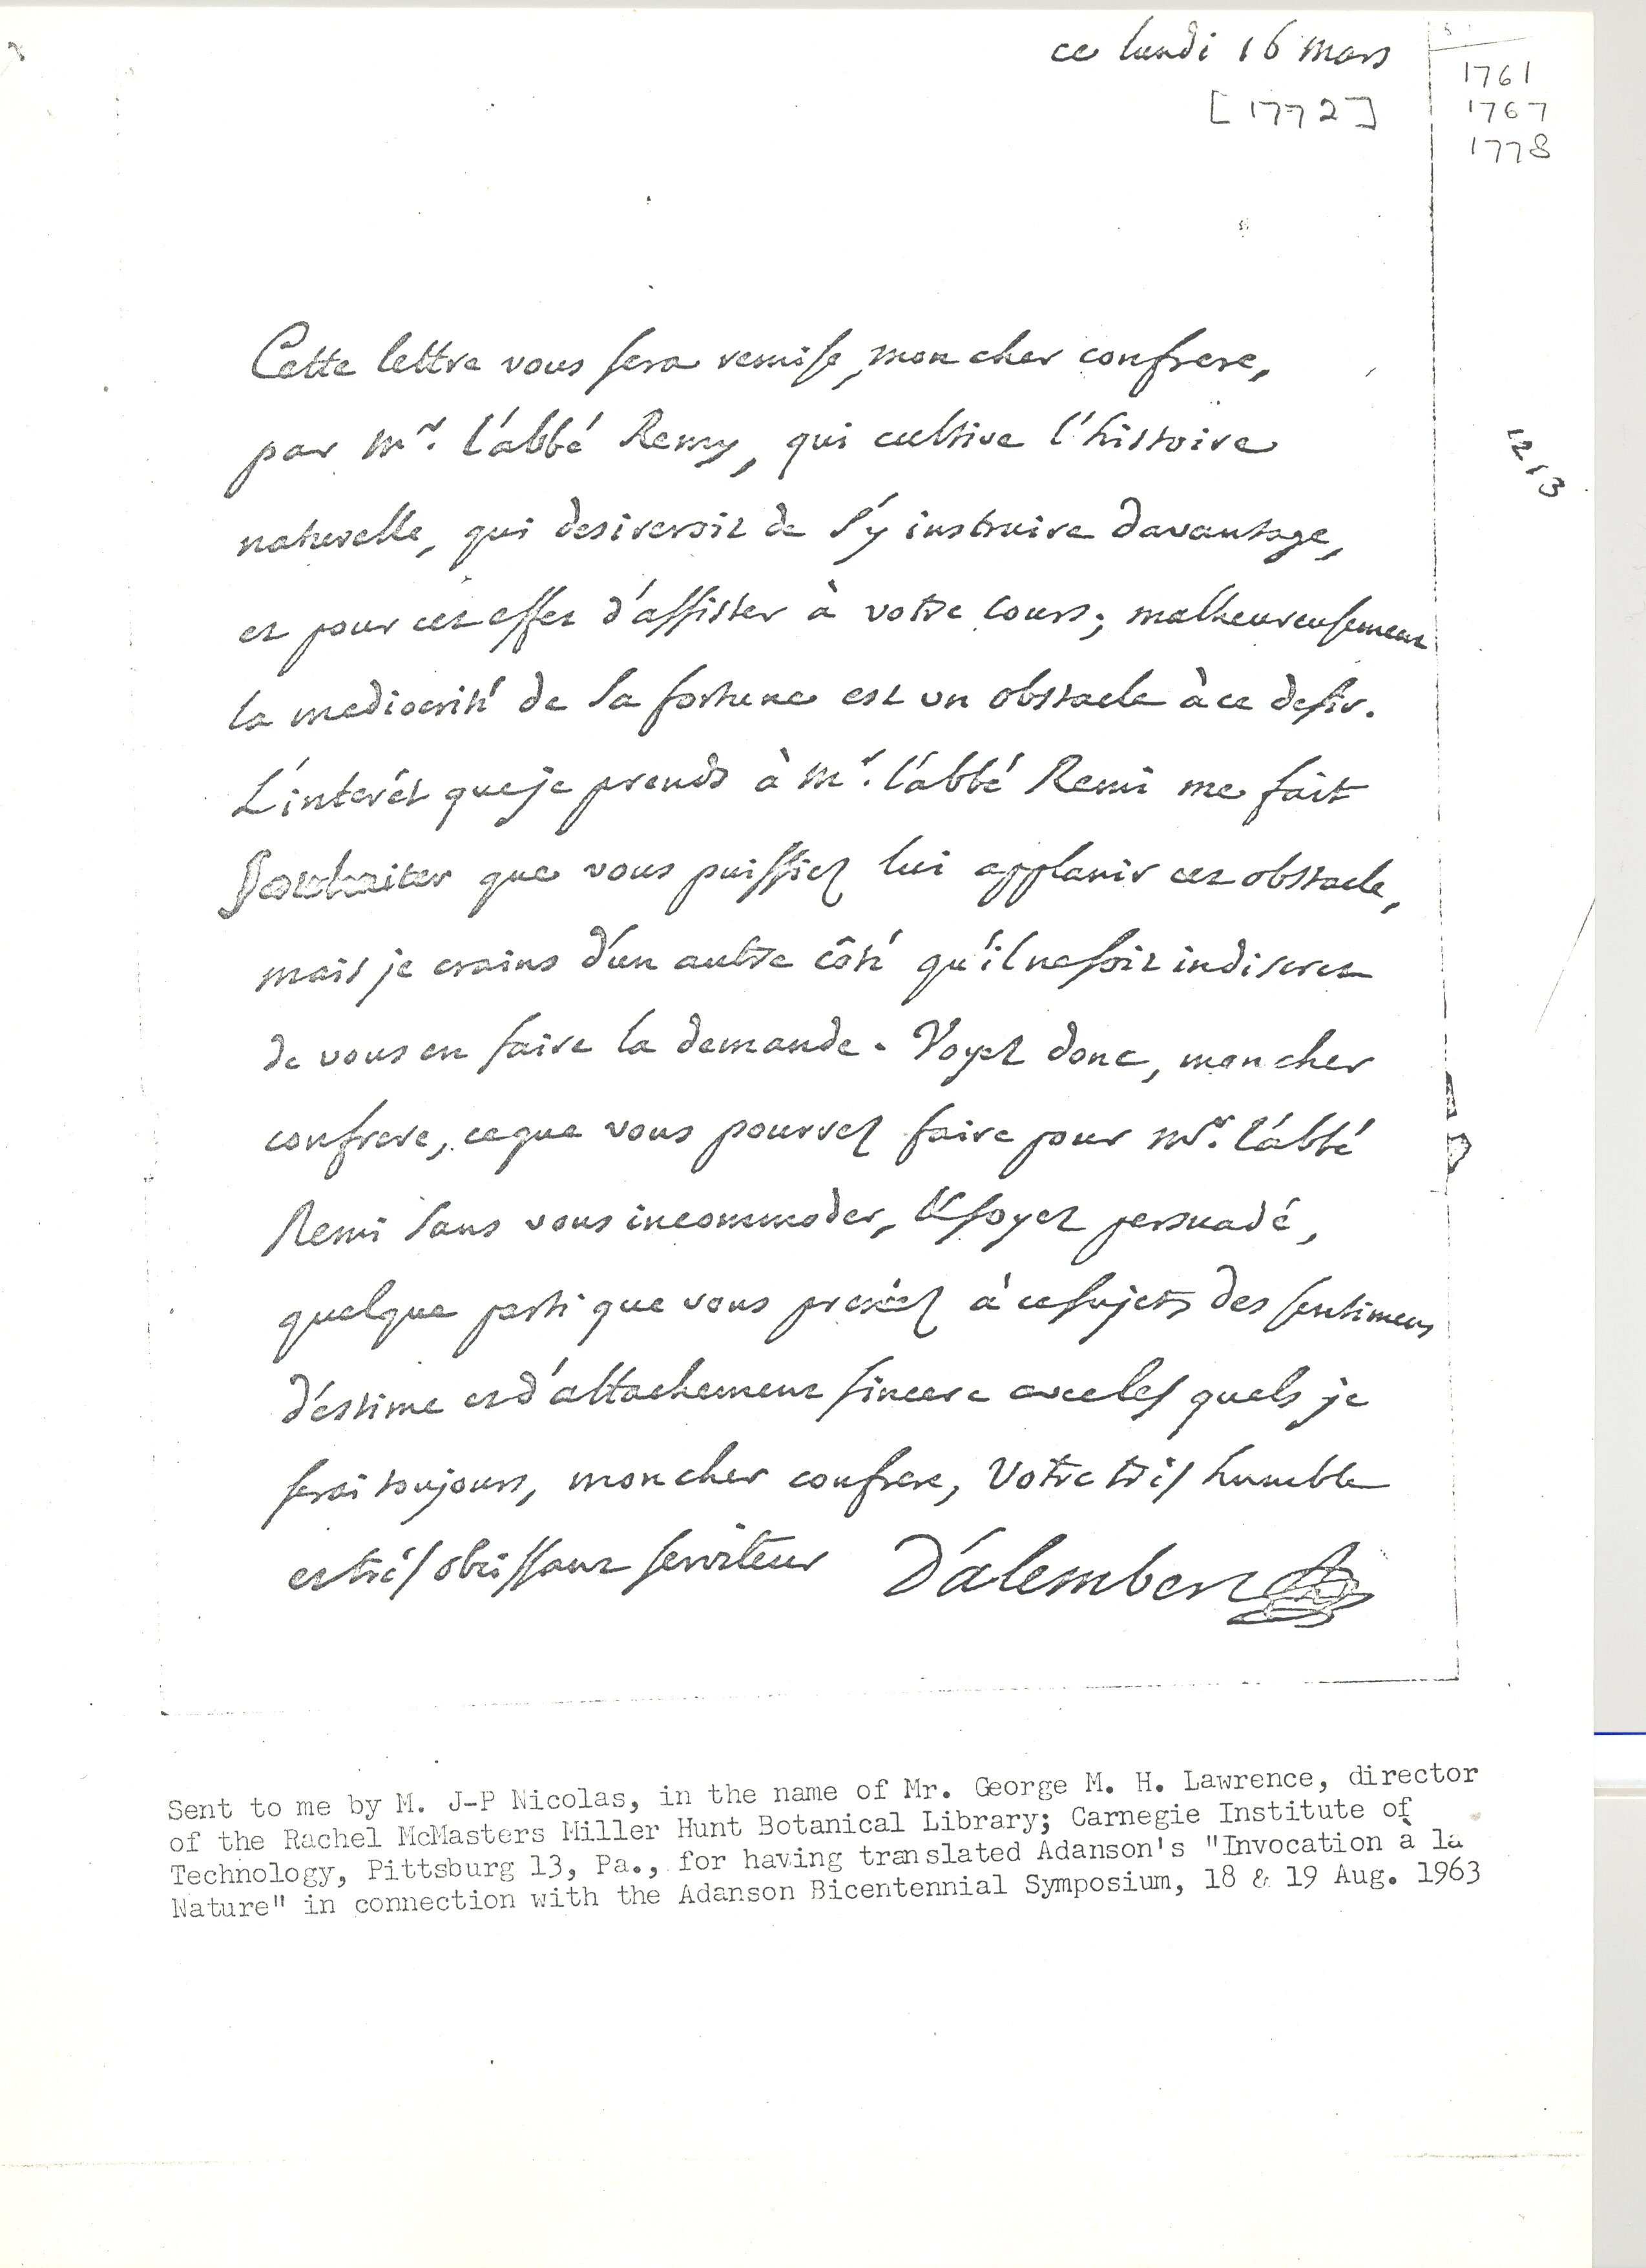 ce lundi 16 mars
[1772]
1761
1767
1778
1213
Cette lettre vous sera remise, mon cher confrere,
par Mr. l'abbé Remy, qui cultive l'histoire
naturelle, qui desireroit de s'y instruire davantage,
et pour cet effet d'assister à votre cours; malheureusement
la mediocrité de sa fortune est un obstacle à ce desir.
L'interét que je prends à Mr. l'abbé Remi me fait
souhaiter que vous puissiez lui applanir cet obstacle,
mais je crains d'un autre côté qu'il ne soit indiscret
de vous en faire la demande. Voyez donc, mon cher
confrere, ce que vous pourrez faire pour Mr. l'abbé
Remi sans vous incommoder, & soyez persuadé,
quelque parti que vous preniez à ce sujet, des sentimens
d'estime et d'attachement sincere avec lesquels je
serai toujours, mon cher confrere, Votre très humble
et très obéissant serviteur D'alembert
Sent to me by M. J-P Nicolas, in the name of Mr. George M. H. Lawrence, director
of the Rachel McMasters Miller Hunt Botanical Library; Carnegie Institute of
Technology, Pittsburg 13, Pa., for having translated Adanson's "Invocation à la
Nature" in connection with the Adanson Bicentennial Symposium, 18 & 19 Aug. 1963